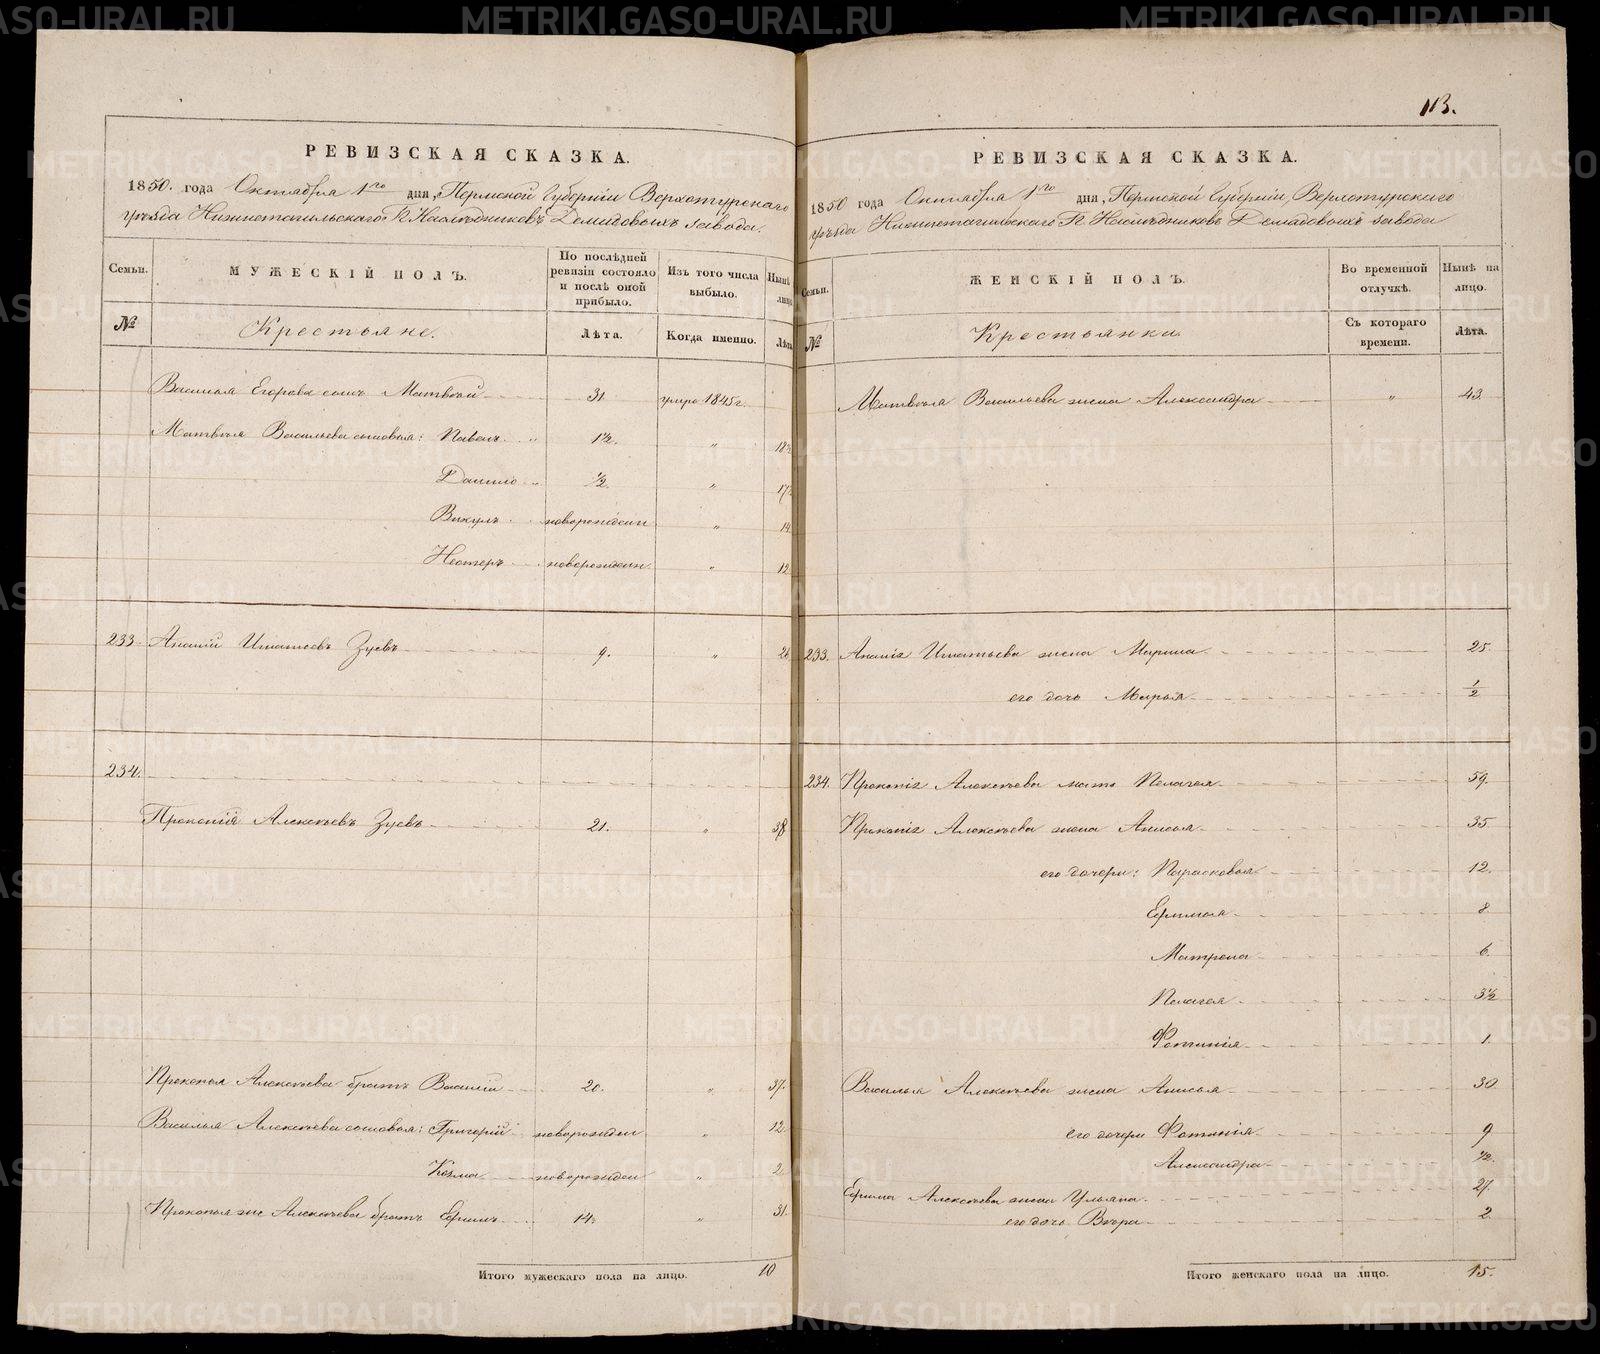 РЕВИЗСКАЯ СКАЗКА.
1850. года Октября 1го дня, Пермской Губерніи Верхотурскаго
уѣзда Нижнетагильскаго Гг. Наслѣдниковъ Демидовыхъ завода.
Семьи.
МУЖЕСКІЙ ПОЛЪ.
По послѣдней ревизіи состояло и послѣ оной прибыло.
Изъ того числа выбыло.
Нынѣ на лицо.
№
Крестьяне.
Лѣта.
Когда именно.
Лѣта.
Василья Егорова сынъ Матвѣй 31 умре 1845 г.
Матвѣя Васильева сыновья: Павелъ 1½. " 18½
Данило ½. " 17½
Викулъ новорожден " 14
Нестеръ новорожден " 12
233. Ананій Игнатьевъ Зуевъ 9. " 26
234.
Прокопій Алексѣевъ Зуевъ 21. " 38
Прокопья Алексѣева братъ Василій 20. " 37.
Василья Алексѣева сыновья: Григорій новорожден " 12.
Козма новорожден " 2
Прокопья же Алексѣева братъ Ефимъ 14. " 31.
Итого мужескаго пола на лицо. 10
113.
РЕВИЗСКАЯ СКАЗКА.
1850 года Октября 1го дня, Пермской Губерніи, Верхотурскаго
уѣзда Нижнетагильскаго Гг. Наслѣдниковъ Демидовыхъ завода
Семьи.
ЖЕНСКІЙ ПОЛЪ.
Во временной отлучкѣ.
Нынѣ на лицо.
№
Крестьянки
Съ котораго времени.
Лѣта.
Матвѣя Васильева жена Александра " 43.
233. Ананія Игнатьева жена Марина 25.
его дочь Марья ½
234. Прокопія Алексѣева мать Пелагея 59.
Прокопія Алексѣева жена Анисья 35
его дочери: Парасковья 12.
Ефимья 8
Матрена 6.
Пелагея 3½
Фотинія 1.
Василья Алексѣева жена Анисья 30
его дочери Фотинія 9
Александра ½.
Ефима Алексѣева жена Ульяна 27
его дочь Вѣра 2.
Итого женскаго пола на лицо. 15.
METRIKI.GASO-URAL.RU